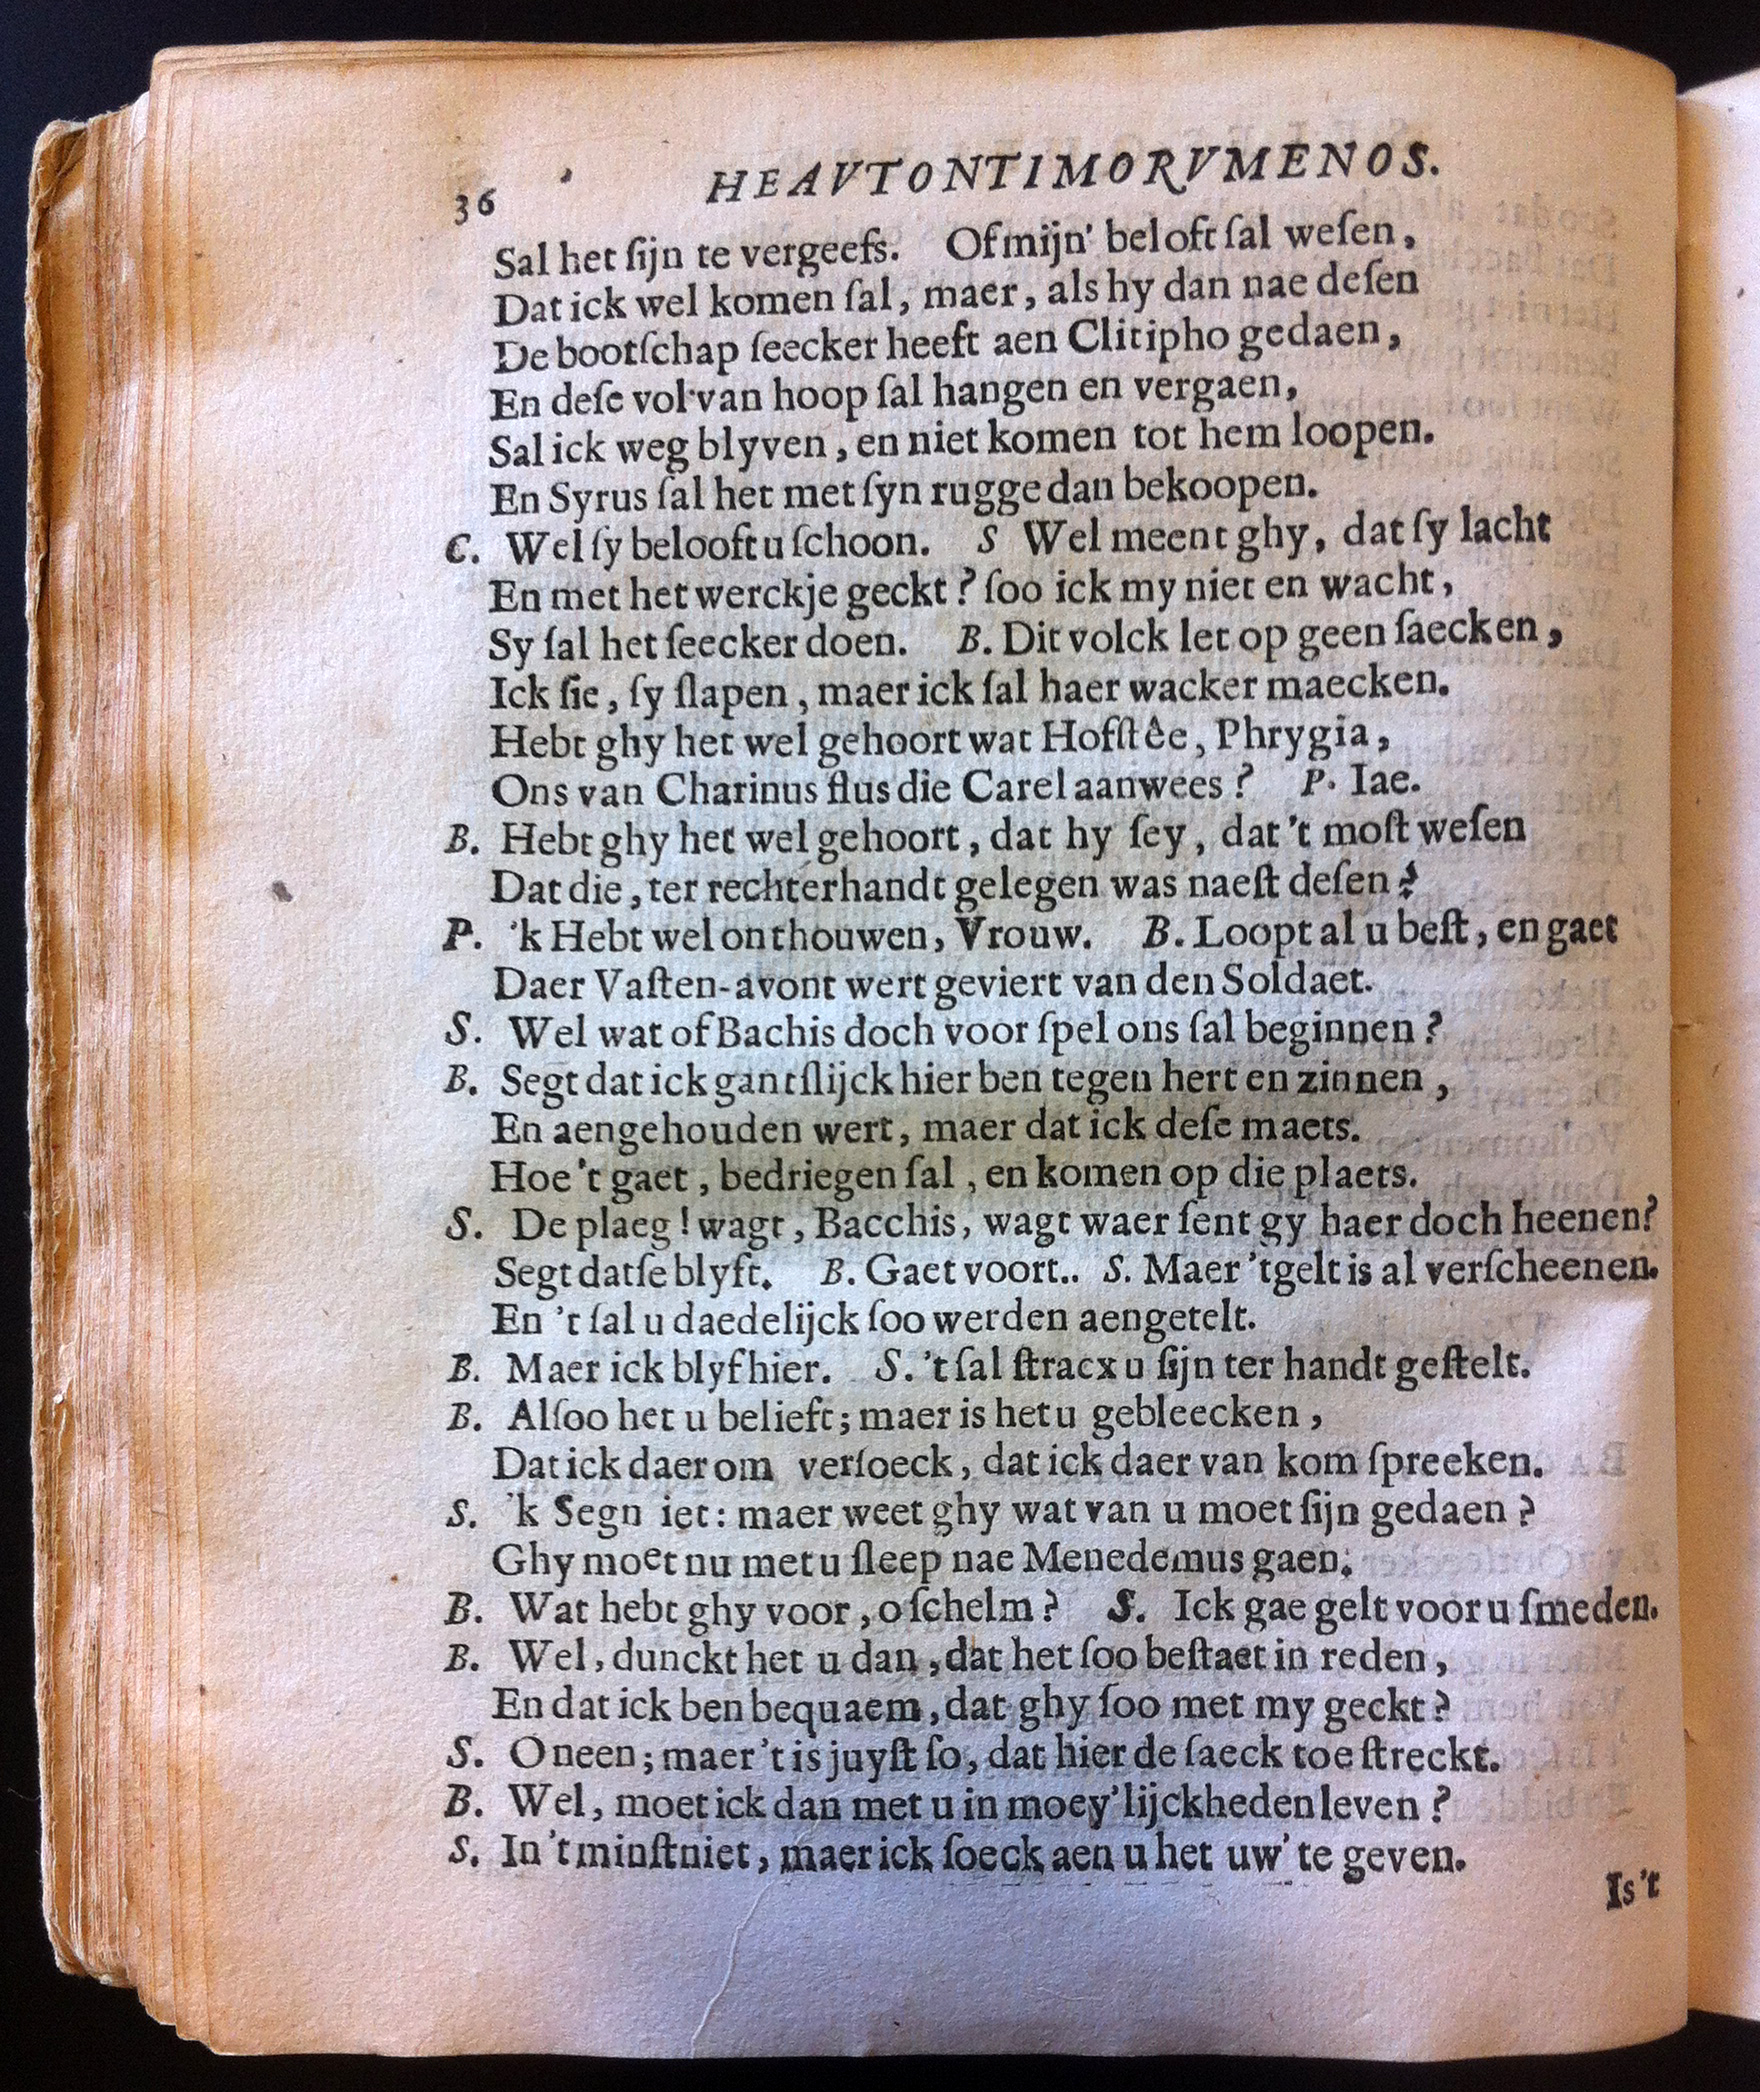 36 HEAVTONTIMORVMENOS.
Sal het ſijn te vergeefs. Of mijn' beloft ſal weſen,
Dat ick wel komen ſal, maer, als hy dan nae deſen
De bootſchap ſeecker heeft aen Clitipho gedaen,
En deſe vol van hoop ſal hangen en vergaen,
Sal ick weg blyven, en niet komen tot hem loopen.
En Syrus ſal het met ſyn rugge dan bekoopen.
C. Wel ſy belooft u ſchoon. S Wel meent ghy, dat ſy lacht
En met het werckje geckt? ſoo ick my niet en wacht,
Sy ſal het ſeecker doen. B. Dit volck let op geen ſaecken,
Ick ſie, ſy ſlapen, maer ick ſal haer wacker maecken.
Hebt ghy het wel gehoort wat Hofſtêe, Phrygia,
Ons van Charinus flus die Carel aanwees? P. Iae.
B. Hebt ghy het wel gehoort, dat hy ſey, dat 't moſt weſen
Dat die, ter rechterhandt gelegen was naeſt deſen?
P. 'k Hebt wel onthouwen, Vrouw. B. Loopt al u beſt, en gaet
Daer Vaſten-avont wert geviert van den Soldaet.
S. Wel wat of Bachis doch voor ſpel ons ſal beginnen?
B. Segt dat ick gantſlijck hier ben tegen hert en zinnen,
En aengehouden wert, maer dat ick deſe maets.
Hoe 't gaet, bedriegen ſal, en komen op die plaets.
S. De plaeg! wagt, Bacchis, wagt waer ſent gy haer doch heenen?
Segt datſe blyft. B. Gaet voort.. S. Maer 't gelt is al verſcheenen.
En 't ſal u daedelijck ſoo werden aengetelt.
B. Maer ick blyf hier. S. 't ſal ſtracx u ſijn ter handt geſtelt.
B. Alſoo het u belieft; maer is het u gebleecken,
Dat ick daerom verſoeck, dat ick daer van kom ſpreeken.
S. 'k Segn iet: maer weet ghy wat van u moet ſijn gedaen?
Ghy moet nu met u ſleep nae Menedemus gaen.
B. Wat hebt ghy voor, o ſchelm? S. Ick gae gelt voor u ſmeden.
B. Wel, dunckt het u dan, dat het ſoo beſtaet in reden,
En dat ick ben bequaem, dat ghy ſoo met my geckt?
S. O neen; maer 't is juyſt ſo, dat hier de ſaeck toe ſtreckt.
B. Wel, moet ick dan met u in moey'lijckheden leven?
S. In 't minſt niet, maer ick ſoeck aen u het uw' te geven.
Is't